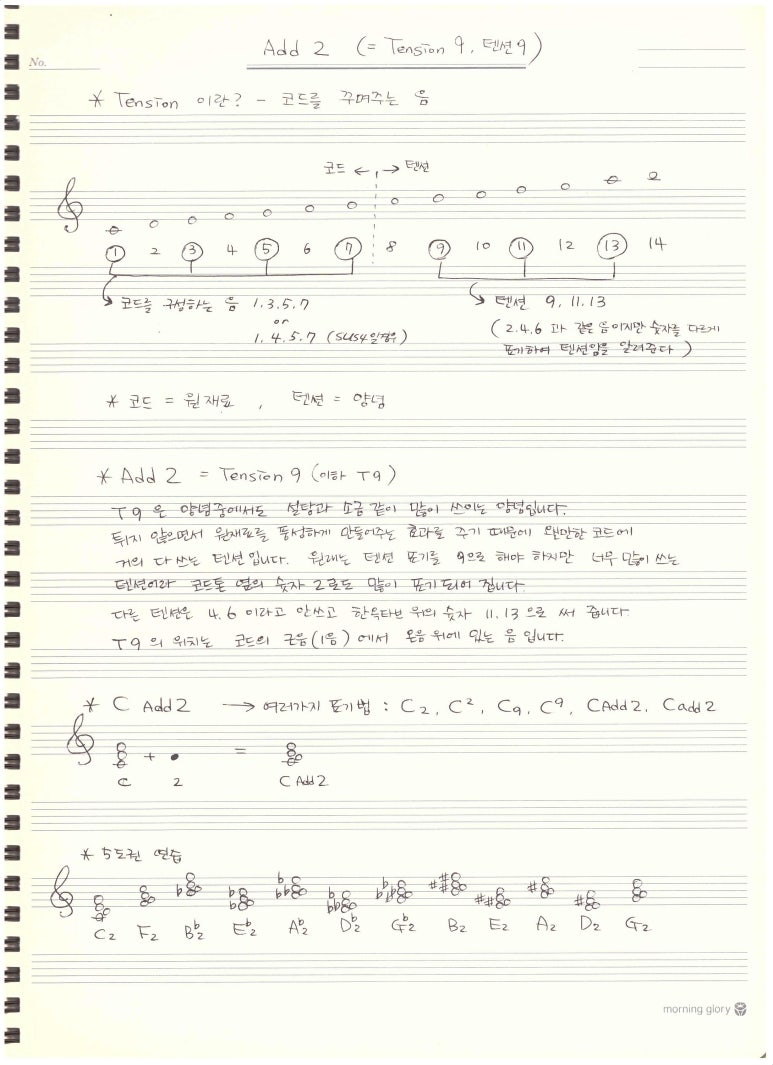 Add 2 (= Tension 9, 텐션9)
No.
* Tension 이란? - 코드를 꾸며주는 음
코드 ← → 텐션
1 2 3 4 5 6 7 8 9 10 11 12 13 14
코드를 구성하는 음 1.3.5.7
or
1.4.5.7 (SUS4일경우)
텐션 9.11.13
(2.4.6 과 같은 음이지만 숫자를 다르게
표기하여 텐션임을 알려준다)
* 코드 = 원재료 , 텐션 = 양념
* Add 2 = Tension 9 (이하 T9)
T9 은 양념중에서도 설탕과 소금 같이 많이 쓰이는 양념입니다.
튀지 않으면서 원재료를 풍성하게 만들어주는 효과를 주기 때문에 왠만한 코드에
거의 다 쓰는 텐션입니다. 원래는 텐션 표기를 9으로 해야 하지만 너무 많이 쓰는
텐션이라 코드톤 옆의 숫자 2로도 많이 표기되어 집니다.
다른 텐션은 4.6 이라고 안쓰고 한옥타브 위의 숫자 11.13 으로 써 줍니다
T9 의 위치는 코드의 근음(1음) 에서 온음 위에 있는 음 입니다.
* C Add2 → 여러가지 표기법 : C2, C², C9, C⁹, CAdd2, Cadd2
+ =
C 2 C Add2
* 5도권 연습
C2 F2 B♭2 E♭2 A♭2 D♭2 G♭2 B2 E2 A2 D2 G2
morning glory